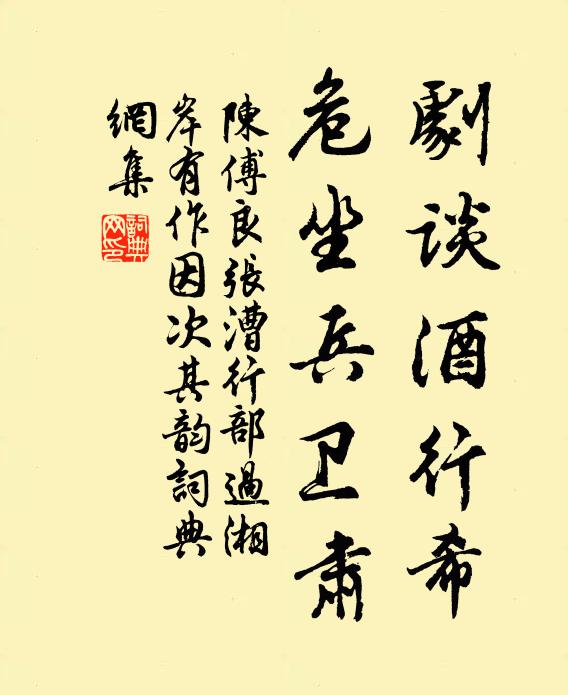 劇談酒行希
危坐兵卫肅
陳傅良張漕行部過湘
岸有作因次其韵詞典
網集
詞典網印